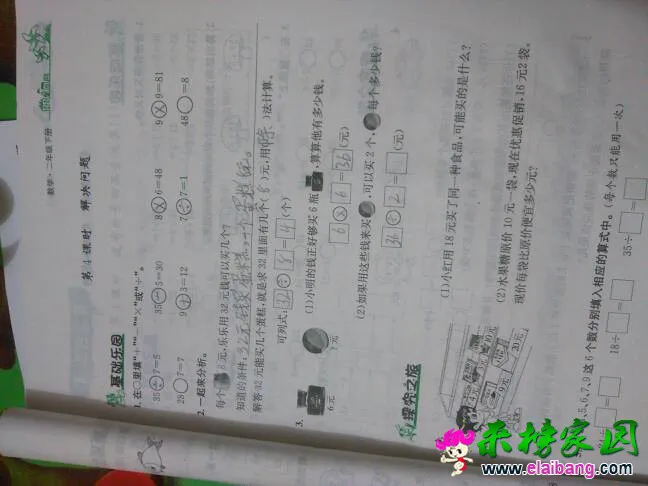 数学·二年级下册
第4课时 解决问题
基础乐园
1.在○里填"+""-""×"或"÷"。
35÷7=5 35-5=30 8×6=48 9×9=81
28○7=7 9+3=12 7÷7=1 48○=8
2.一起来分析。
每个 8元,乐乐用32元钱可以买几个?
知道的条件:
解答32元能买几个蛋糕,就是求32里面有几个(8)元,用(除)法计算。
可列式:32÷8=4(个)
3.
6元 ?元
(1)小明的钱正好够买6瓶 ,算算他有多少钱。
6×6=36(元)
(2)如果用这些钱来买 ,可以买2个, 每个多少钱?
36÷2=□(元)
探究之旅
(1)小红用18元买了同一种食品,可能买的是什么?
(2)水果糖原价10元一袋,现在优惠促销,16元2袋。
现价每袋比原价便宜多少元?
10元
9元
20元
、5、6、7、9这6个数分别填入相应的算式中。(每个数只能用一次)
=□ 18÷□=□ 35÷□=□
乐榜家园
www.elaibang.com